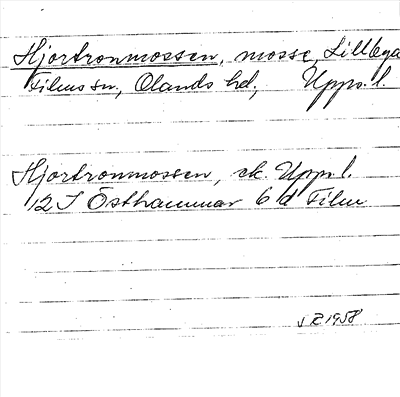 Hjortronmossen, mosse, Lillbyga
Films sn, Olands hd, Upps. l.
Hjortronmossen, ek. Upps. l.
12 I Östhammar 6 d Film
1958